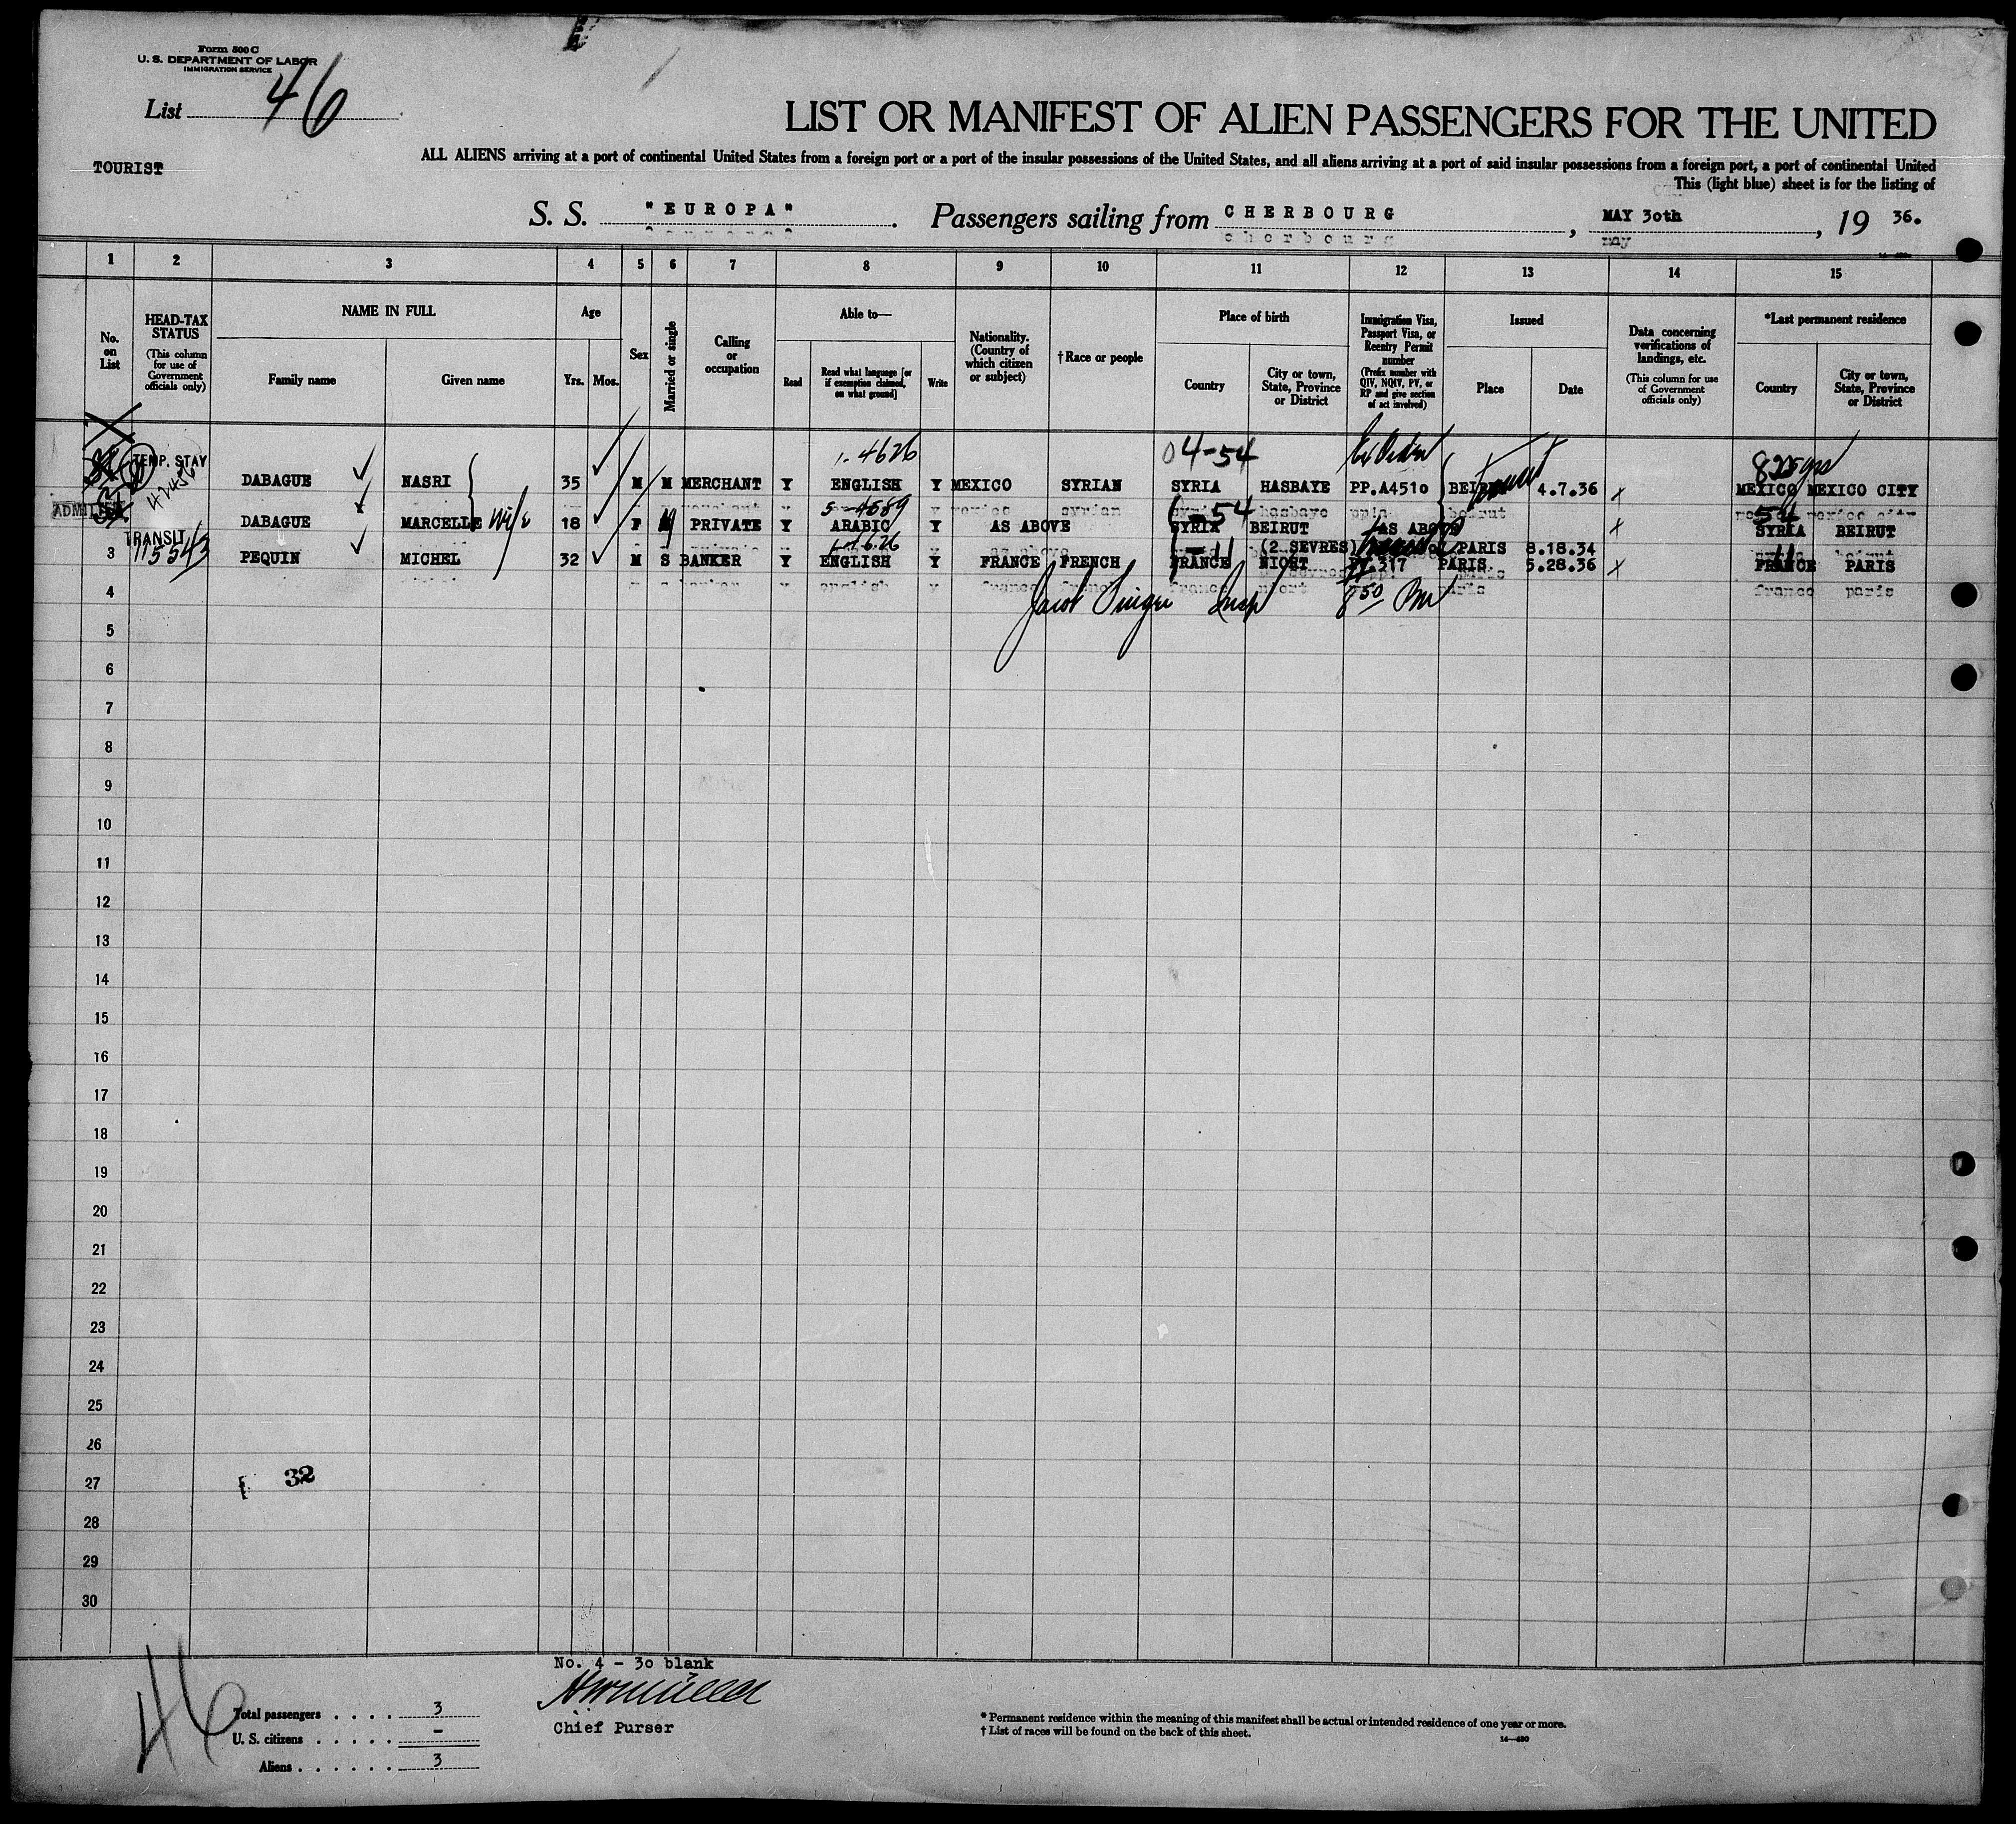 Form 500 C
U. S. DEPARTMENT OF LABOR
IMMIGRATION SERVICE
List 46
LIST OR MANIFEST OF ALIEN PASSENGERS FOR THE UNITED
TOURIST
ALL ALIENS arriving at a port of continental United States from a foreign port or a port of the insular possessions of the United States, and all aliens arriving at a port of said insular possessions from a foreign port, a port of continental United
This (light blue) sheet is for the listing of
S. S. "EUROPA". Passengers sailing from CHERBOURG, MAY 30th, 19 36.
1 2 3 4 5 6 7 8 9 10 11 12 13 14 15
No. on List
HEAD-TAX STATUS
(This column for use of Government officials only)
NAME IN FULL
Family name
Given name
Age
Yrs.
Mos.
Sex
Married or single
Calling or occupation
Able to—
Read
Read what language [or if exemption claimed, on what ground]
Write
Nationality. (Country of which citizen or subject)
†Race or people
Place of birth
Country
City or town, State, Province or District
Immigration Visa, Passport Visa, or Reentry Permit number
(Prefix number with QIV, NQIV, PV, or RP and give section of act involved)
Issued
Place
Date
Data concerning verifications of landings, etc.
(This column for use of Government officials only)
*Last permanent residence
Country
City or town, State, Province or District
1-4626 04-54
TEMP. STAY DABAGUE NASRI 35 M M MERCHANT Y ENGLISH Y MEXICO SYRIAN SYRIA HASBAYE PP.A4510 4.7.36 MEXICO MEXICO CITY
5-4589 54 54
DABAGUE MARCELLE Wife 18 F M PRIVATE Y ARABIC Y AS ABOVE SYRIA BEIRUT AS ABOVE SYRIA BEIRUT
TRANSIT (2 SEVRES) PARIS 8.18.34
3 PEQUIN MICHEL 32 M S BANKER Y ENGLISH Y FRANCE FRENCH FRANCE NIORT 317 PARIS 5.28.36 FRANCE PARIS
4
5
6
7
8
9
10
11
12
13
14
15
16
17
18
19
20
21
22
23
24
25
26
27 32
28
29
30
No. 4 - 30 blank
46
Total passengers . . . . 3
U. S. citizens . . . . . -
Aliens . . . . . . 3
Chief Purser
* Permanent residence within the meaning of this manifest shall be actual or intended residence of one year or more.
† List of races will be found on the back of this sheet.
14—480